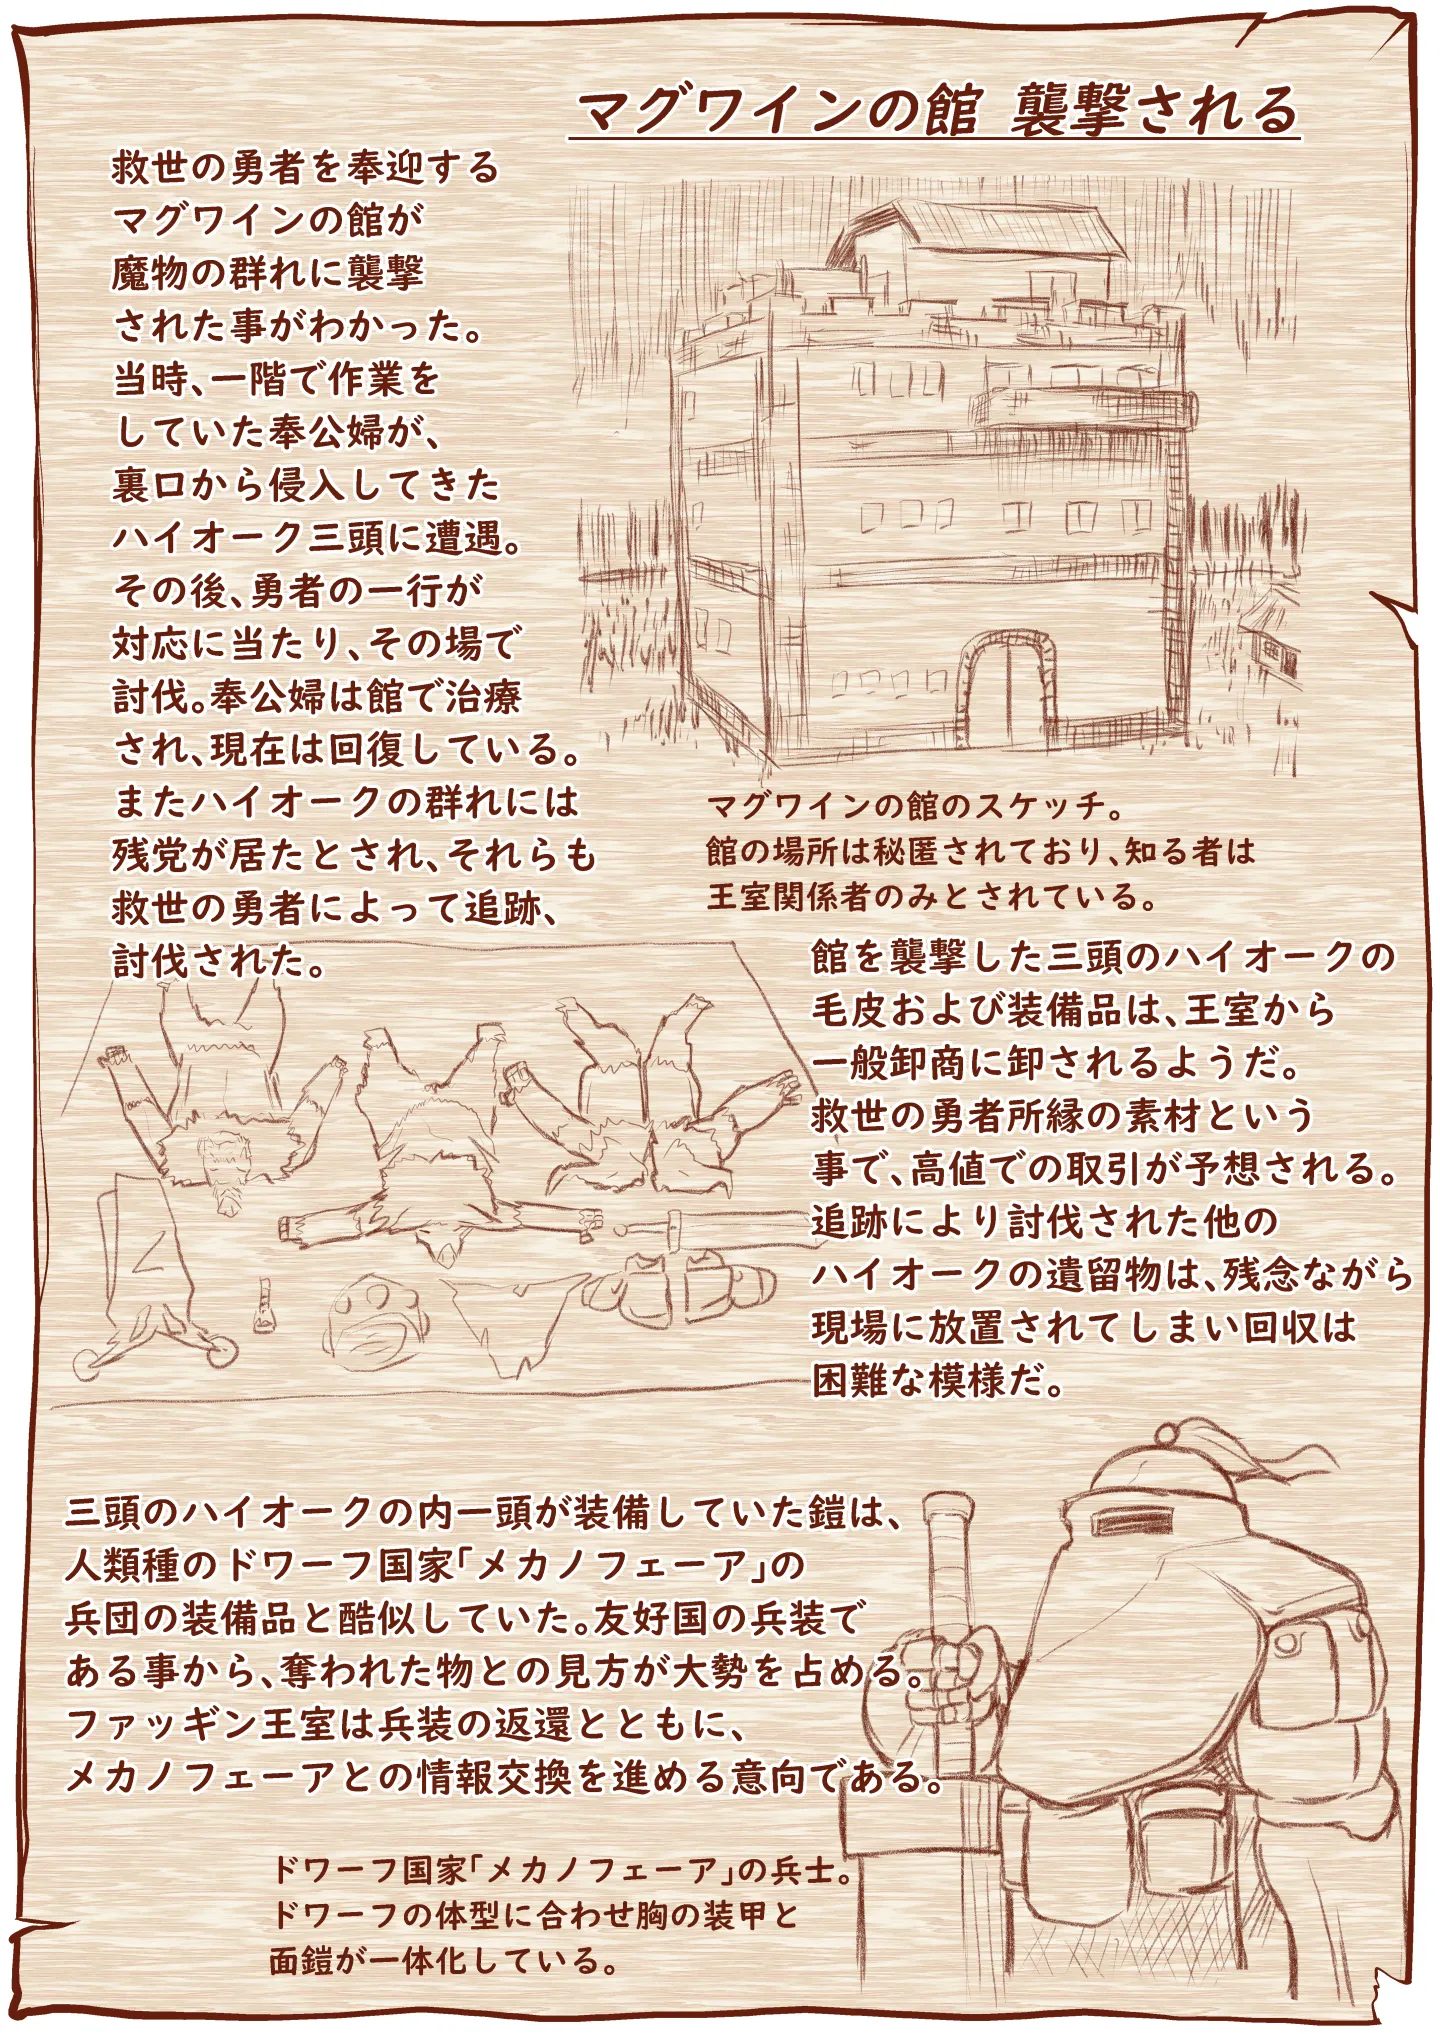 マグワインの館 襲撃される
救世の勇者を奉迎する
マグワインの館が
魔物の群れに襲撃
された事がわかった。
当時、一階で作業を
していた奉公婦が、
裏口から侵入してきた
ハイオーク三頭に遭遇。
その後、勇者の一行が
対応に当たり、その場で
討伐。奉公婦は館で治療
され、現在は回復している。
またハイオークの群れには
残党が居たとされ、それらも
救世の勇者によって追跡、
討伐された。
マグワインの館のスケッチ。
館の場所は秘匿されており、知る者は
王室関係者のみとされている。
館を襲撃した三頭のハイオークの
毛皮および装備品は、王室から
一般卸商に卸されるようだ。
救世の勇者所縁の素材という
事で、高値での取引が予想される。
追跡により討伐された他の
ハイオークの遺留物は、残念ながら
現場に放置されてしまい回収は
困難な模様だ。
三頭のハイオークの内一頭が装備していた鎧は、
人類種のドワーフ国家「メカノフェーア」の
兵団の装備品と酷似していた。友好国の兵装で
ある事から、奪われた物との見方が大勢を占める。
ファッギン王室は兵装の返還とともに、
メカノフェーアとの情報交換を進める意向である。
ドワーフ国家「メカノフェーア」の兵士。
ドワーフの体型に合わせ胸の装甲と
面鎧が一体化している。